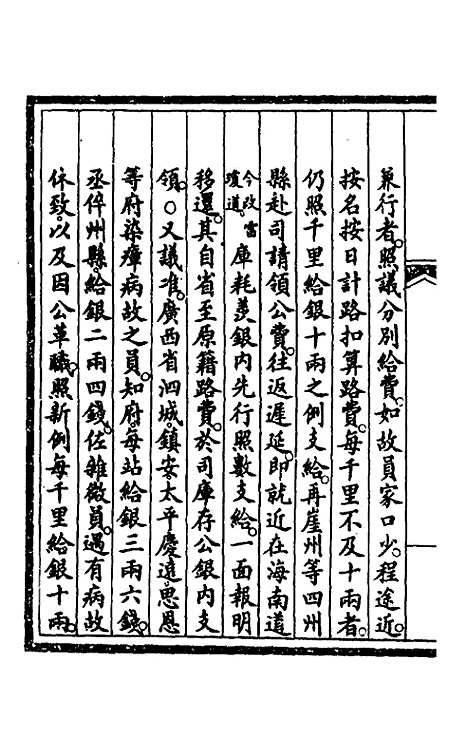 兼行者。照議分別給費。如故員家口少。程途近。
按名按日計路扣算路費。每千里不及十兩者。
仍照千里給銀十兩之例支給。再崖州等四州
縣赴司請領公費。往返遲延。即就近在海南道
今改雷瓊道。庫耗羨銀內先行照數支給。一面報明
移還。其自省至原籍路費。於司庫存公銀內支
領。〇又議准。廣西省泗城。鎮安。太平。慶遠。思恩
等府染瘴病故之員。知府。每站給銀三兩六錢。
丞倅州縣。給銀二兩四錢。佐雜微員。遇有病故
休致。以及因公革職。照新例每千里給銀十兩。